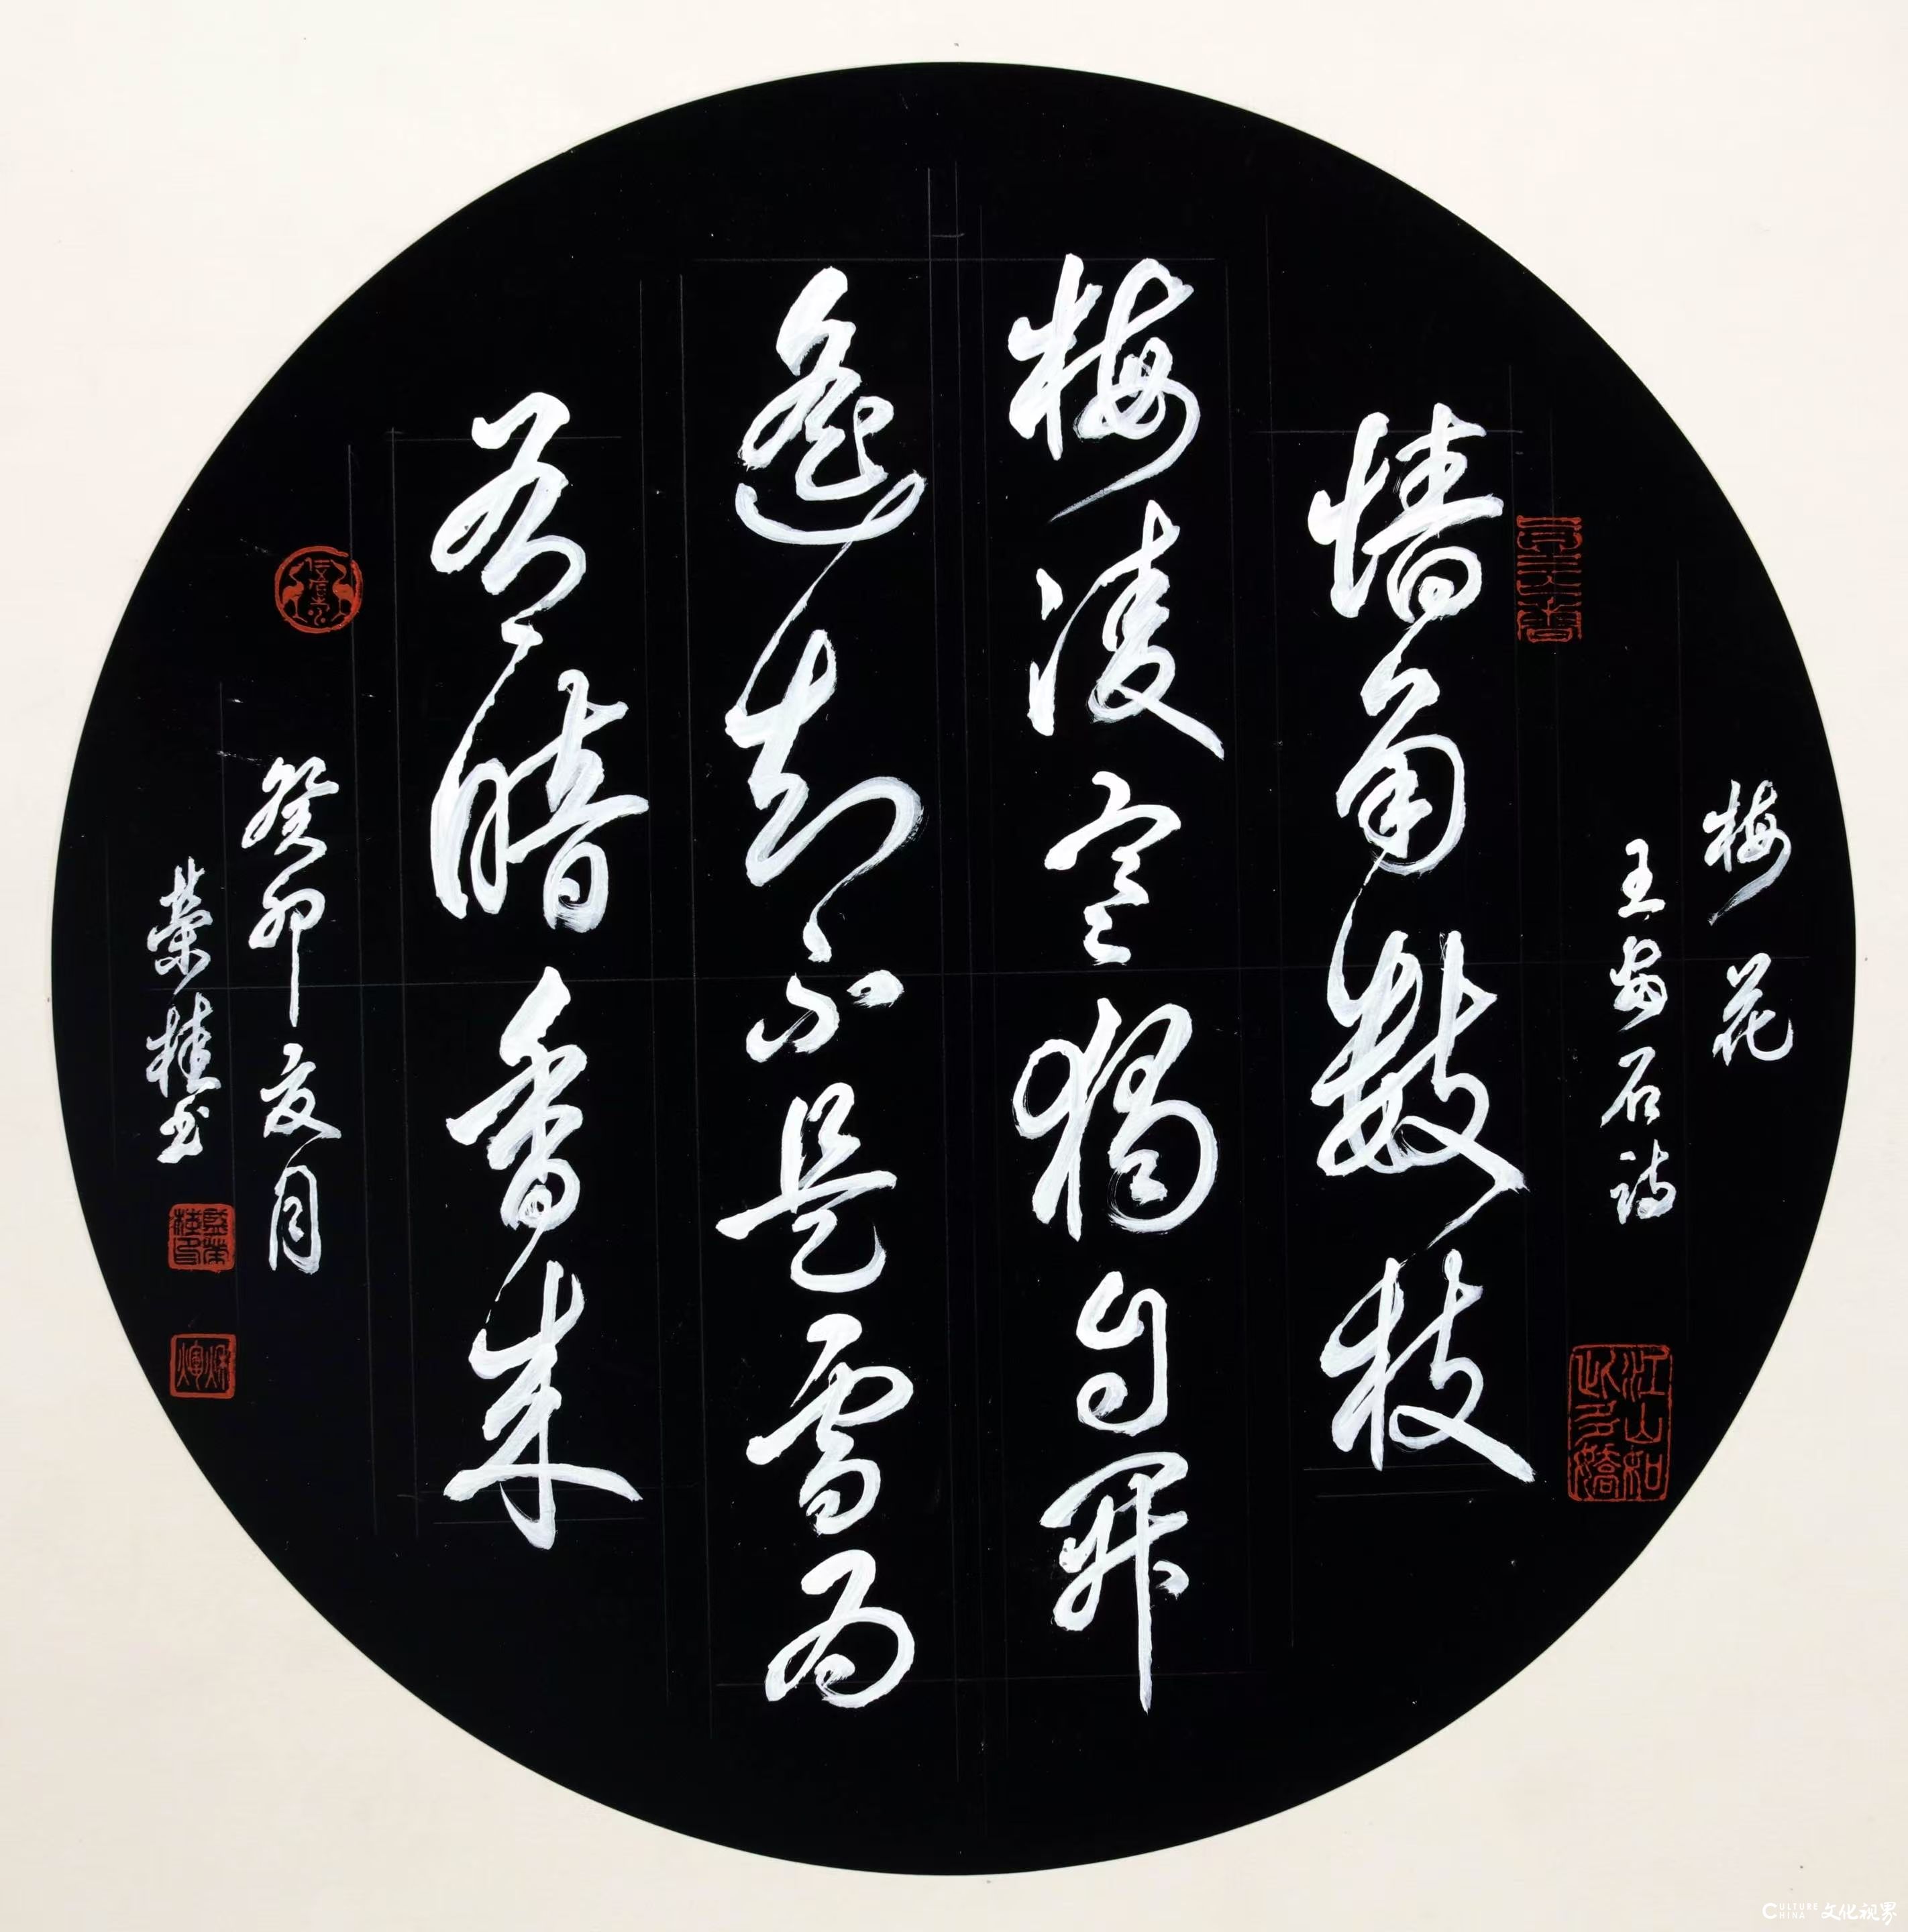 梅花
王安石诗
墙角数枝
梅凌寒独自开
遥知不是雪为
有暗香来
癸卯夏月
荣桂书
江山如
此多娇
CULTURE
CHINA
文化视界